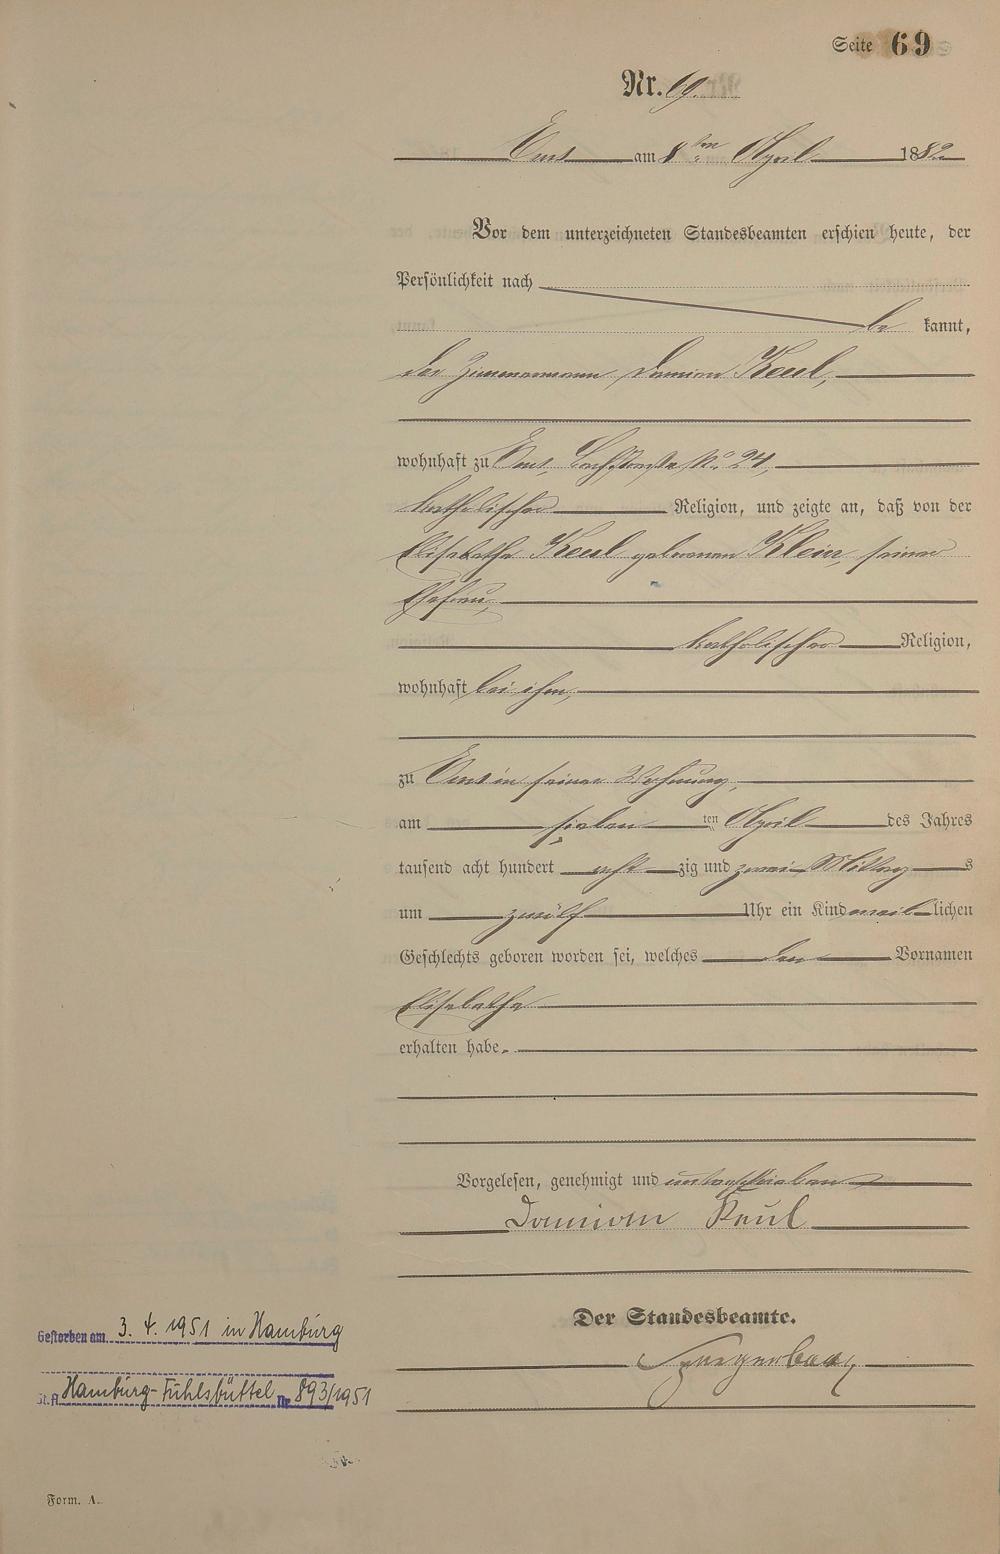 Seite 69
Nr. 69.
Ems am 8ten April 1882
Vor dem unterzeichneten Standesbeamten erschien heute, der
Persönlichkeit nach
be kannt,
der Zimmermann Damian Keul,
wohnhaft zu Ems, Bachstraße No 24,
katholischer Religion, und zeigte an, daß von der
Elisabetha Keul geborenen Kleier, seiner
Ehefrau,
katholischer Religion,
wohnhaft bei ihm,
zu Ems in seiner Wohnung,
am sieben ten April des Jahres
tausend acht hundert acht zig und zwei Mittag s
um zwölf Uhr ein Kind weib lichen
Geschlechts geboren worden sei, welches den Vornamen
Elisabetha
erhalten habe.
Vorgelesen, genehmigt und unterschrieben
Damian Keul
Der Standesbeamte.
Gestorben am 3. 4. 1951 in Hamburg
St. A. Hamburg-Fuhlsbüttel Nr. 893/1951
Form. A.